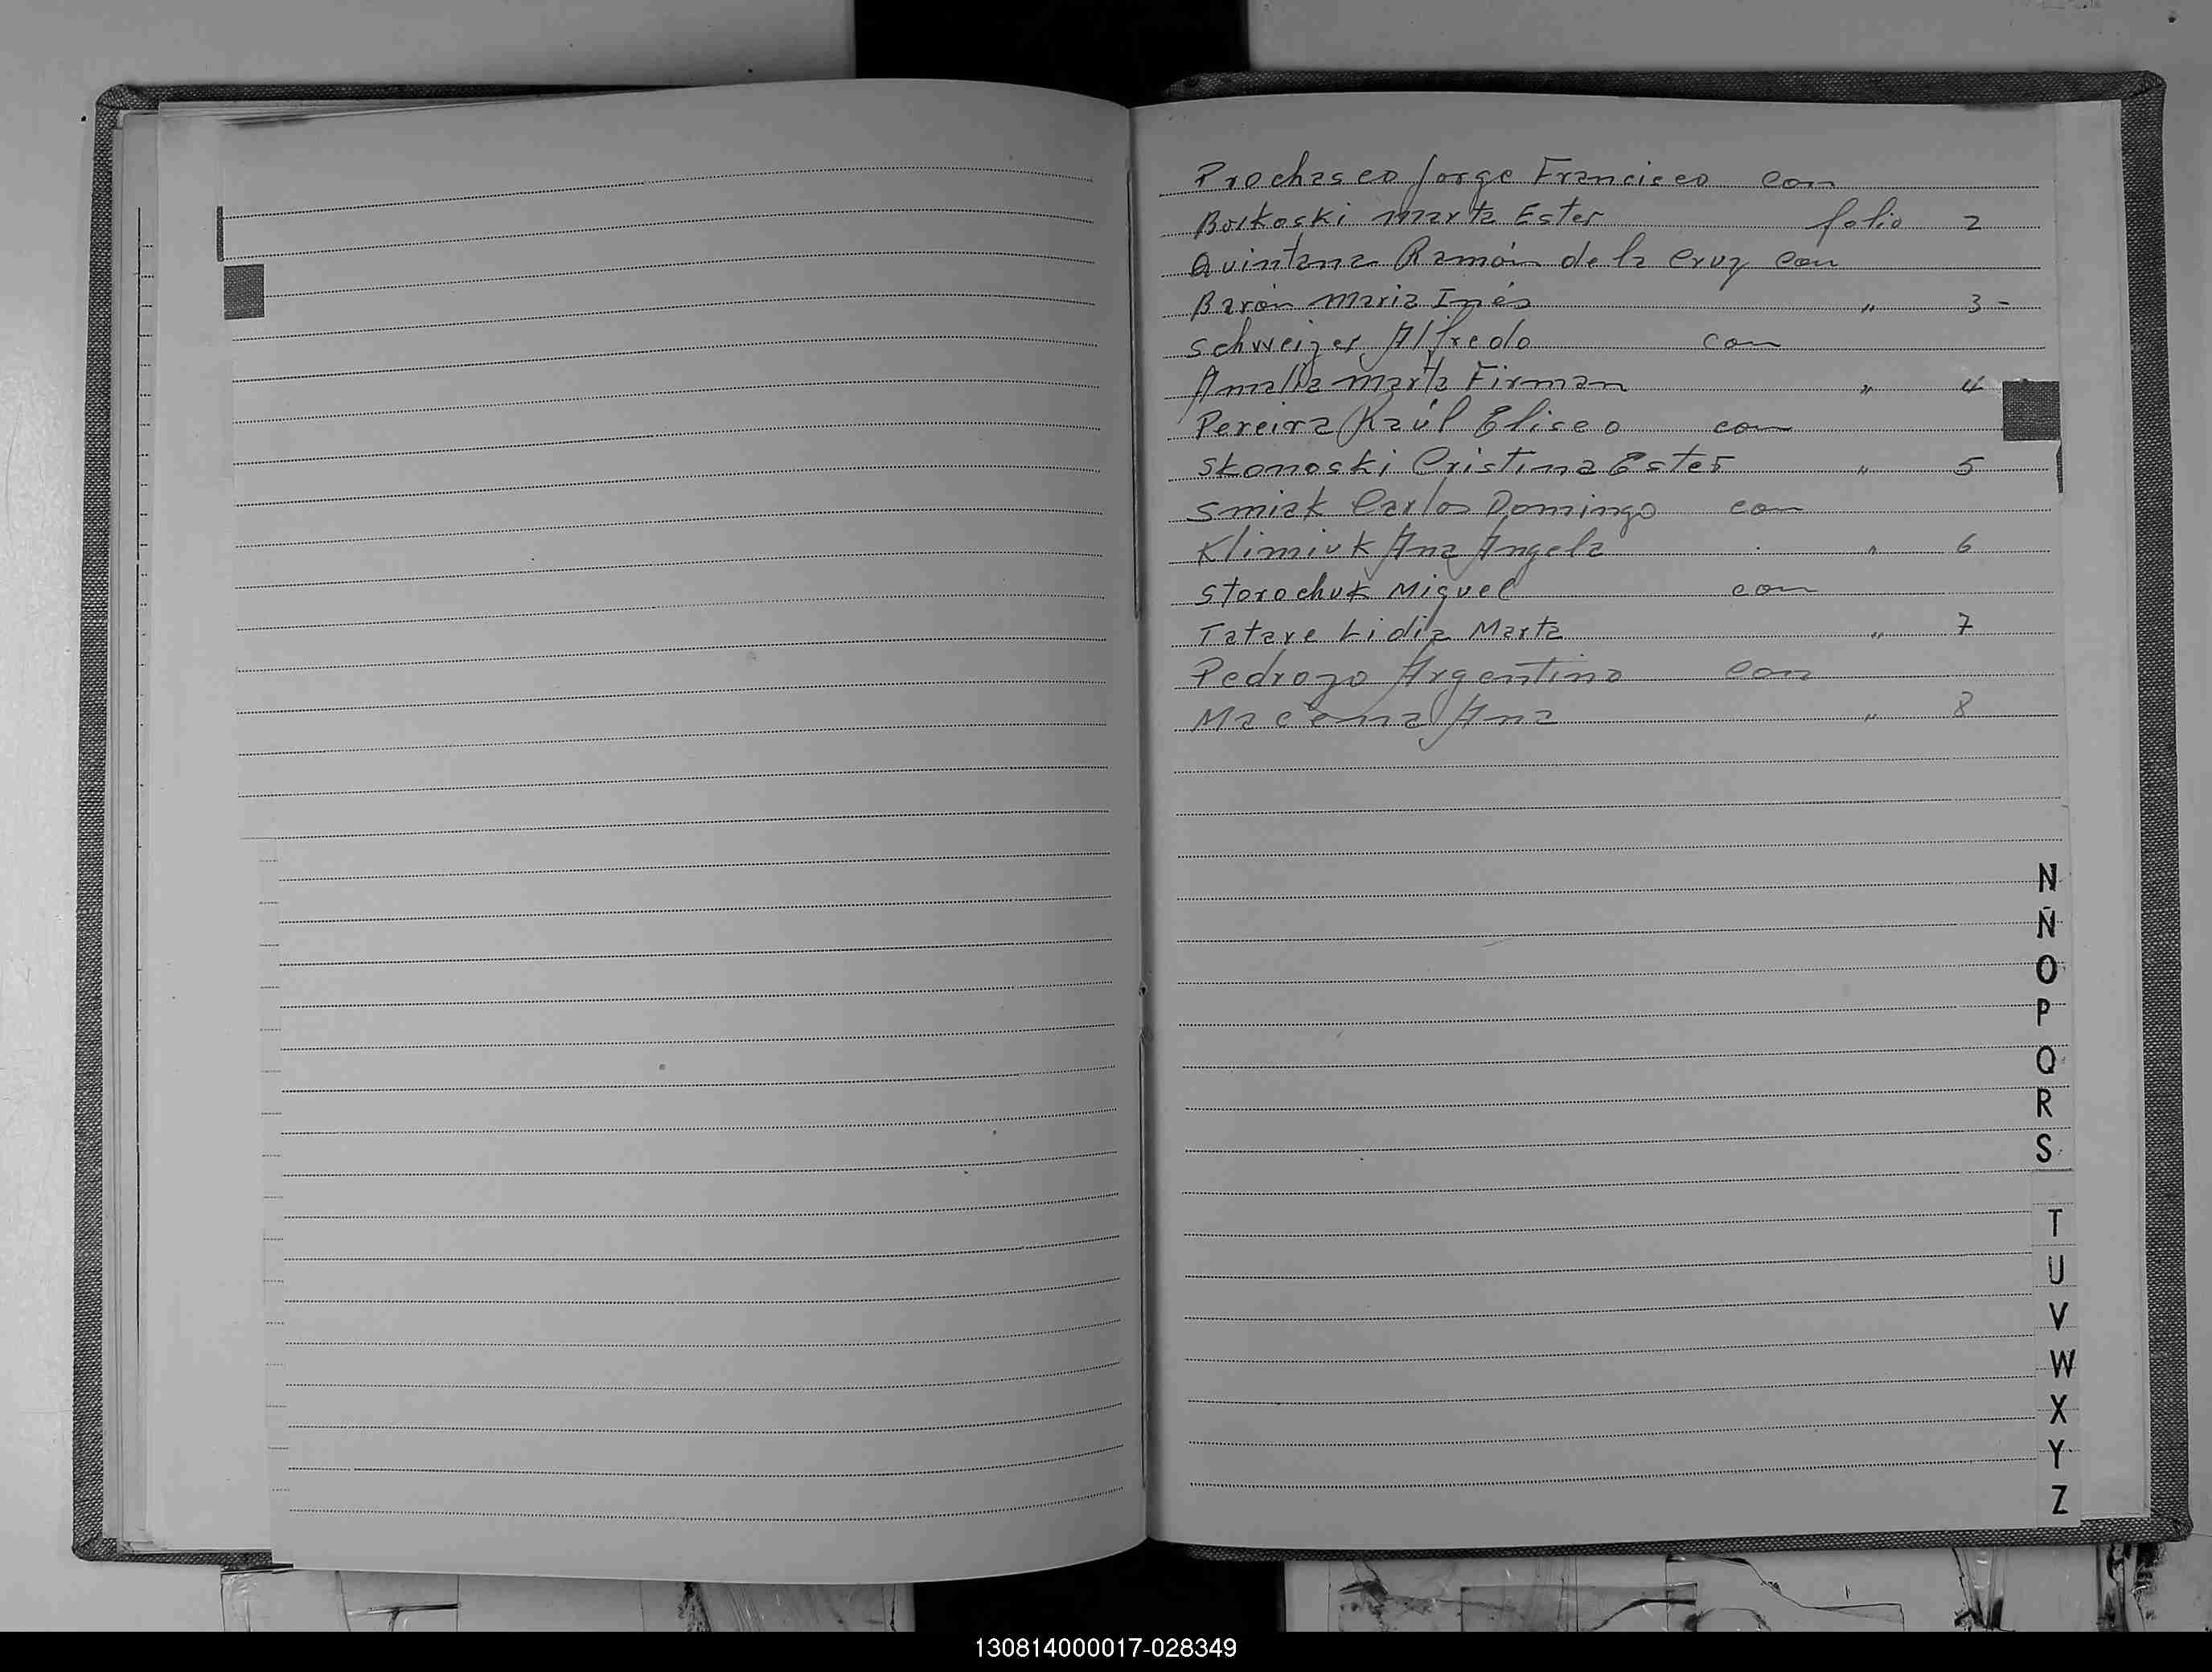 Prochasco Jorge Francisco con
Borkoski Marta Ester folio 2
Quintana Ramón de la Cruz con
Barón Maria Inés " 3 -
Schweizer Alfredo con
Amalia Marta Firman " 4
Pereira Raúl Eliseo con
Skonoski Cristina Ester " 5
Smiak Carlos Domingo con
Klimiuk Ana Angela " 6
Storochuk Miguel con
Tatare Lidia Marta " 7
Pedrozo Argentino con
Ana " 8
N
Ñ
O
P
Q
R
S
T
U
V
W
X
Y
Z
130814000017-028349